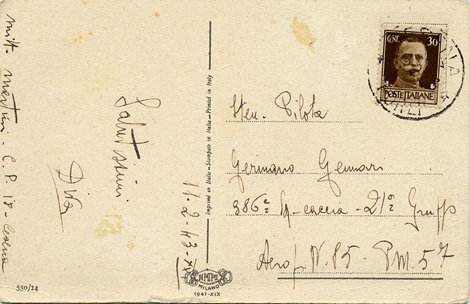 mitt. Martini - C. P. 18 - Cesena
Salutissimi
Diva
11-2-43-XXI
Imprimé en Italie - Stampato in Italia - Printed in Italy
MILANO
1941-XIX
550/24
CENT. 30
POSTE ITALIANE
Sten. Pilota
Germano Gennari
386ª Sq. caccia - 21º Gruppo
Aerop. N. 85 - P.M. 57